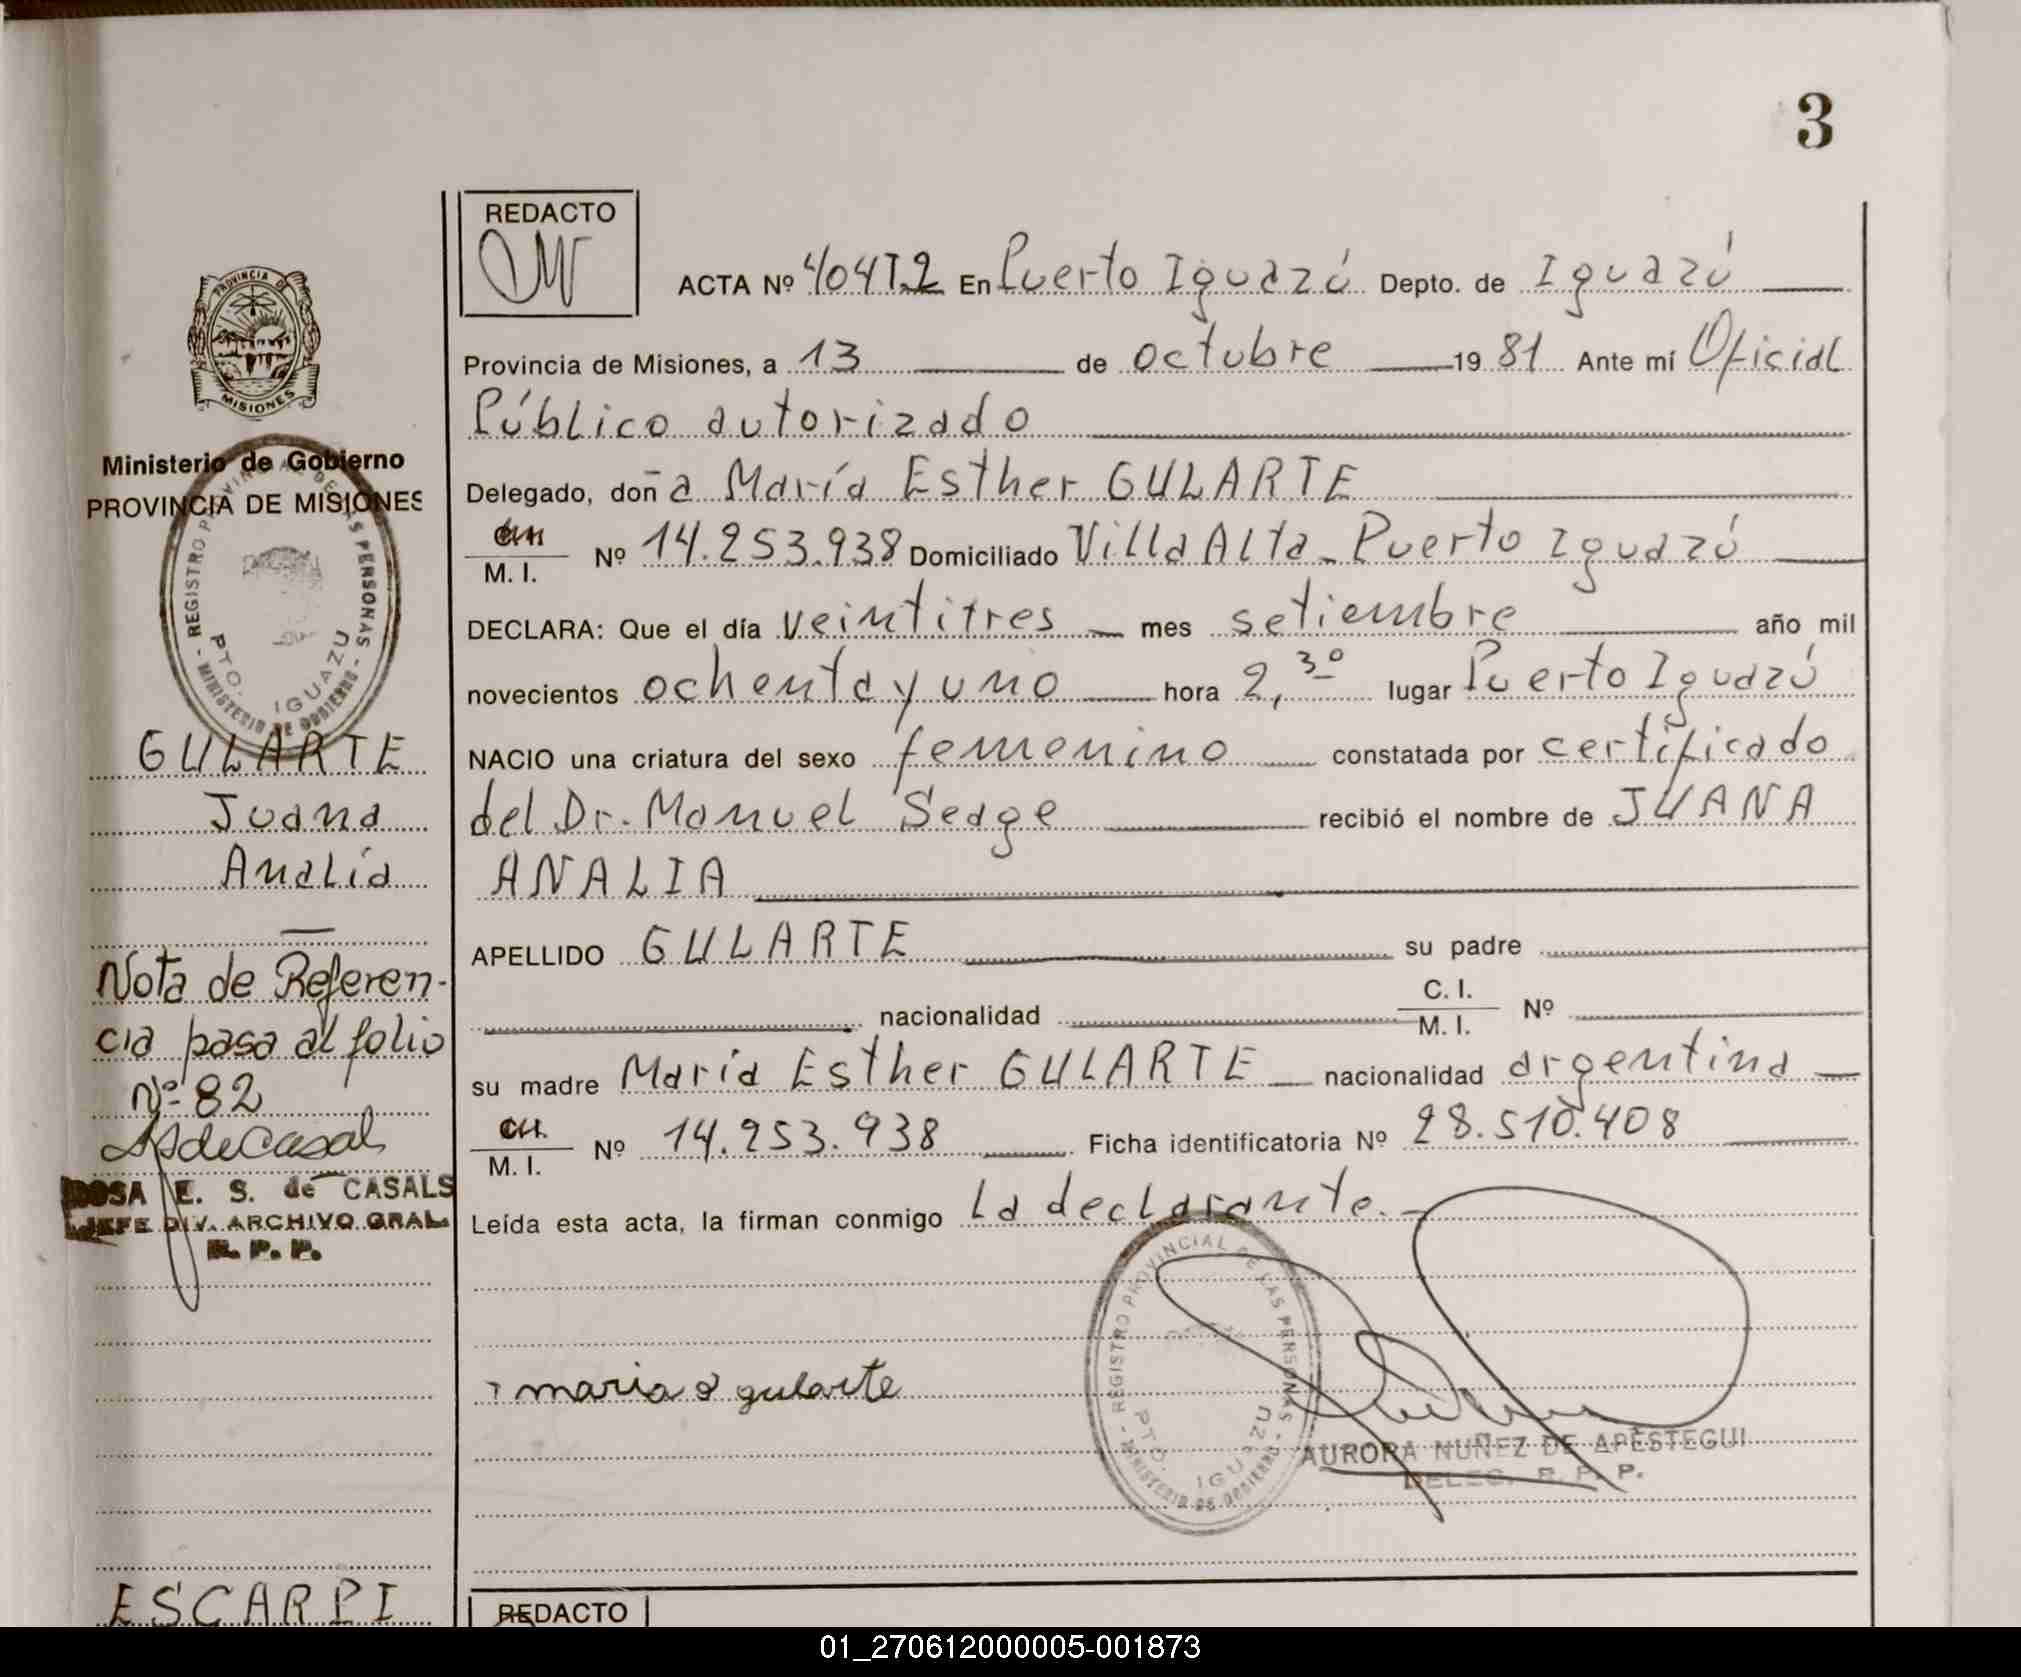 3
REDACTO
ACTA Nº 404T.2 En Puerto Iguazú Depto. de Iguazú
Provincia de Misiones, a 13 de octubre 1981 Ante mí Oficial
Público autorizado
Delegado, doña María Esther GULARTE
M. I. Nº 14.253.938 Domiciliado Villa Alta - Puerto Iguazú
DECLARA: Que el día veintitres mes setiembre año mil
novecientos ochenta y uno hora 2,30 lugar Puerto Iguazú
NACIO una criatura del sexo femenino constatada por certificado
del Dr. Manuel Seage recibió el nombre de JUANA
ANALIA
APELLIDO GULARTE su padre
nacionalidad C. I. M. I. Nº
su madre María Esther GULARTE nacionalidad argentina
M. I. Nº 14.253.938 Ficha identificatoria Nº 28.510.408
Leída esta acta, la firman conmigo la declarante.-
maria e gularte
REGISTRO PROVINCIAL DE LAS PERSONAS - MINISTERIO DE GOBIERNO -
PTO. IGUAZU
AURORA NUÑEZ DE APESTEGUI
DELEG. R. P. P.
PROVINCIA DE
MISIONES
Ministerio de Gobierno
PROVINCIA DE MISIONES
REGISTRO PROVINCIAL DE LAS PERSONAS - MINISTERIO DE GOBIERNO -
PTO. IGUAZU
GULARTE
Juana
Analía
Nota de Referen-
cia pasa al folio
Nº 82
ROSA E. S. de CASALS
JEFE DIV. ARCHIVO GRAL.
R. P. P.
ESCARPI
REDACTO
01_270612000005-001873